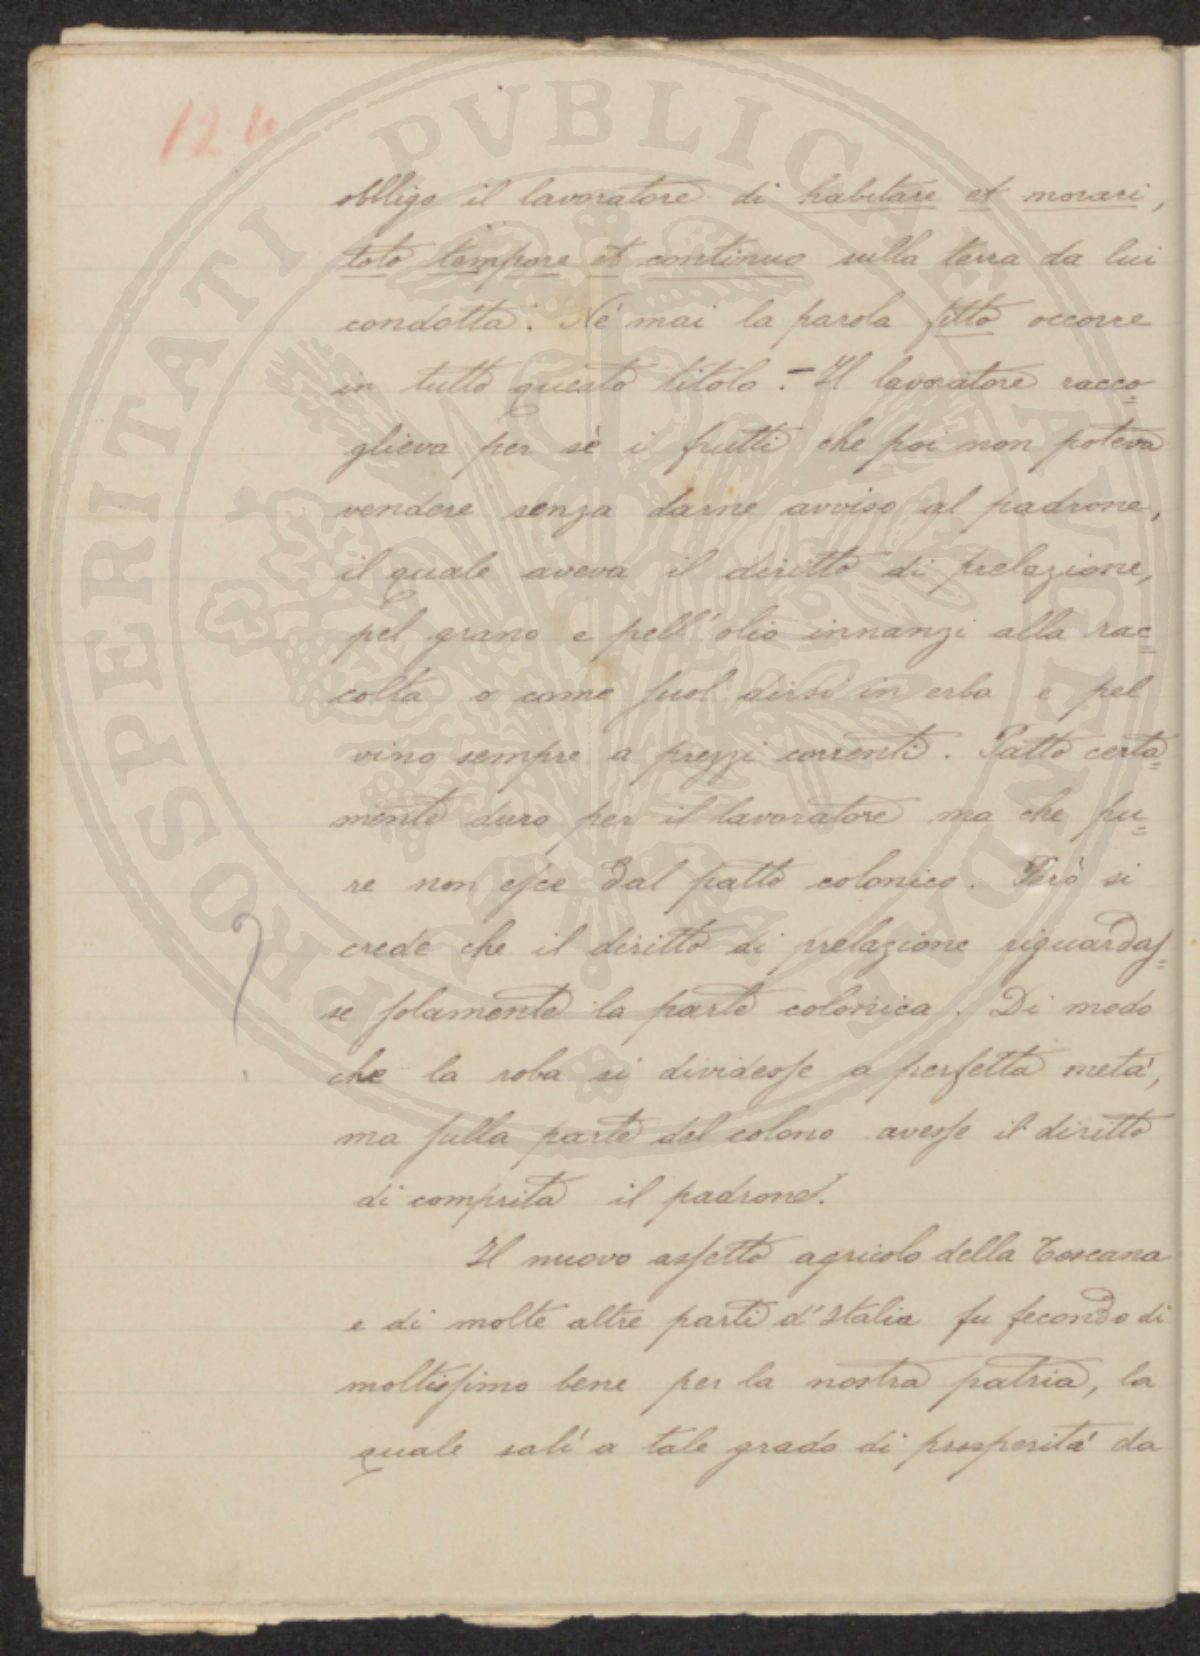 124
obbligo il lavoratore di habitare et morari,
toto tempore et continuo sulla terra da lui
condotta. Nè mai la parola fitto occorre
in tutto questo titolo. - Il lavoratore racco-
glieva per sè i frutti che poi non poteva
vendere senza darne avviso al padrone,
il quale aveva il diritto di prelazione,
pel grano e pell'olio innanzi alla rac=
colta o come suol dirsi in erba e pel
vino sempre a prezzi correnti. Patto certa=
mente duro per il lavoratore ma che pu=
re non esce dal patto colonico. Però si
crede che il diritto di prelazione riguardas=
se solamente la parte colonica. Di modo
che la roba si dividesse a perfetta metà,
ma sulla parte del colono avesse il diritto
di comprita il padrone.
Il nuovo aspetto agricolo della Toscana
e di molte altre parti d'Italia fu fecondo di
moltissimo bene per la nostra patria, la
quale salí a tale grado di prosperitá da
PROSPERITATI PVBLICAE AVGENDAE